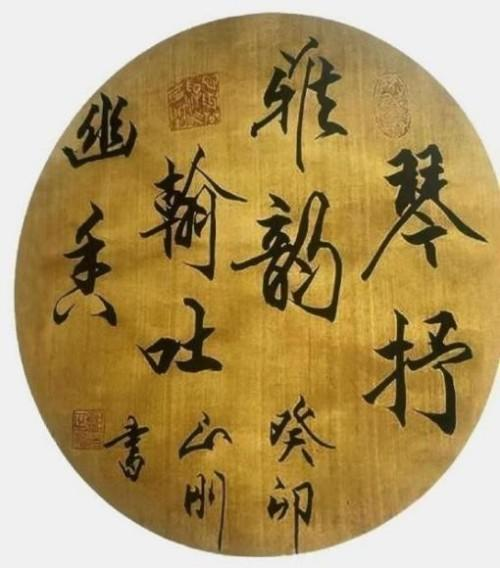 琴抒
雅韵癸卯
翰吐山刚
幽香書